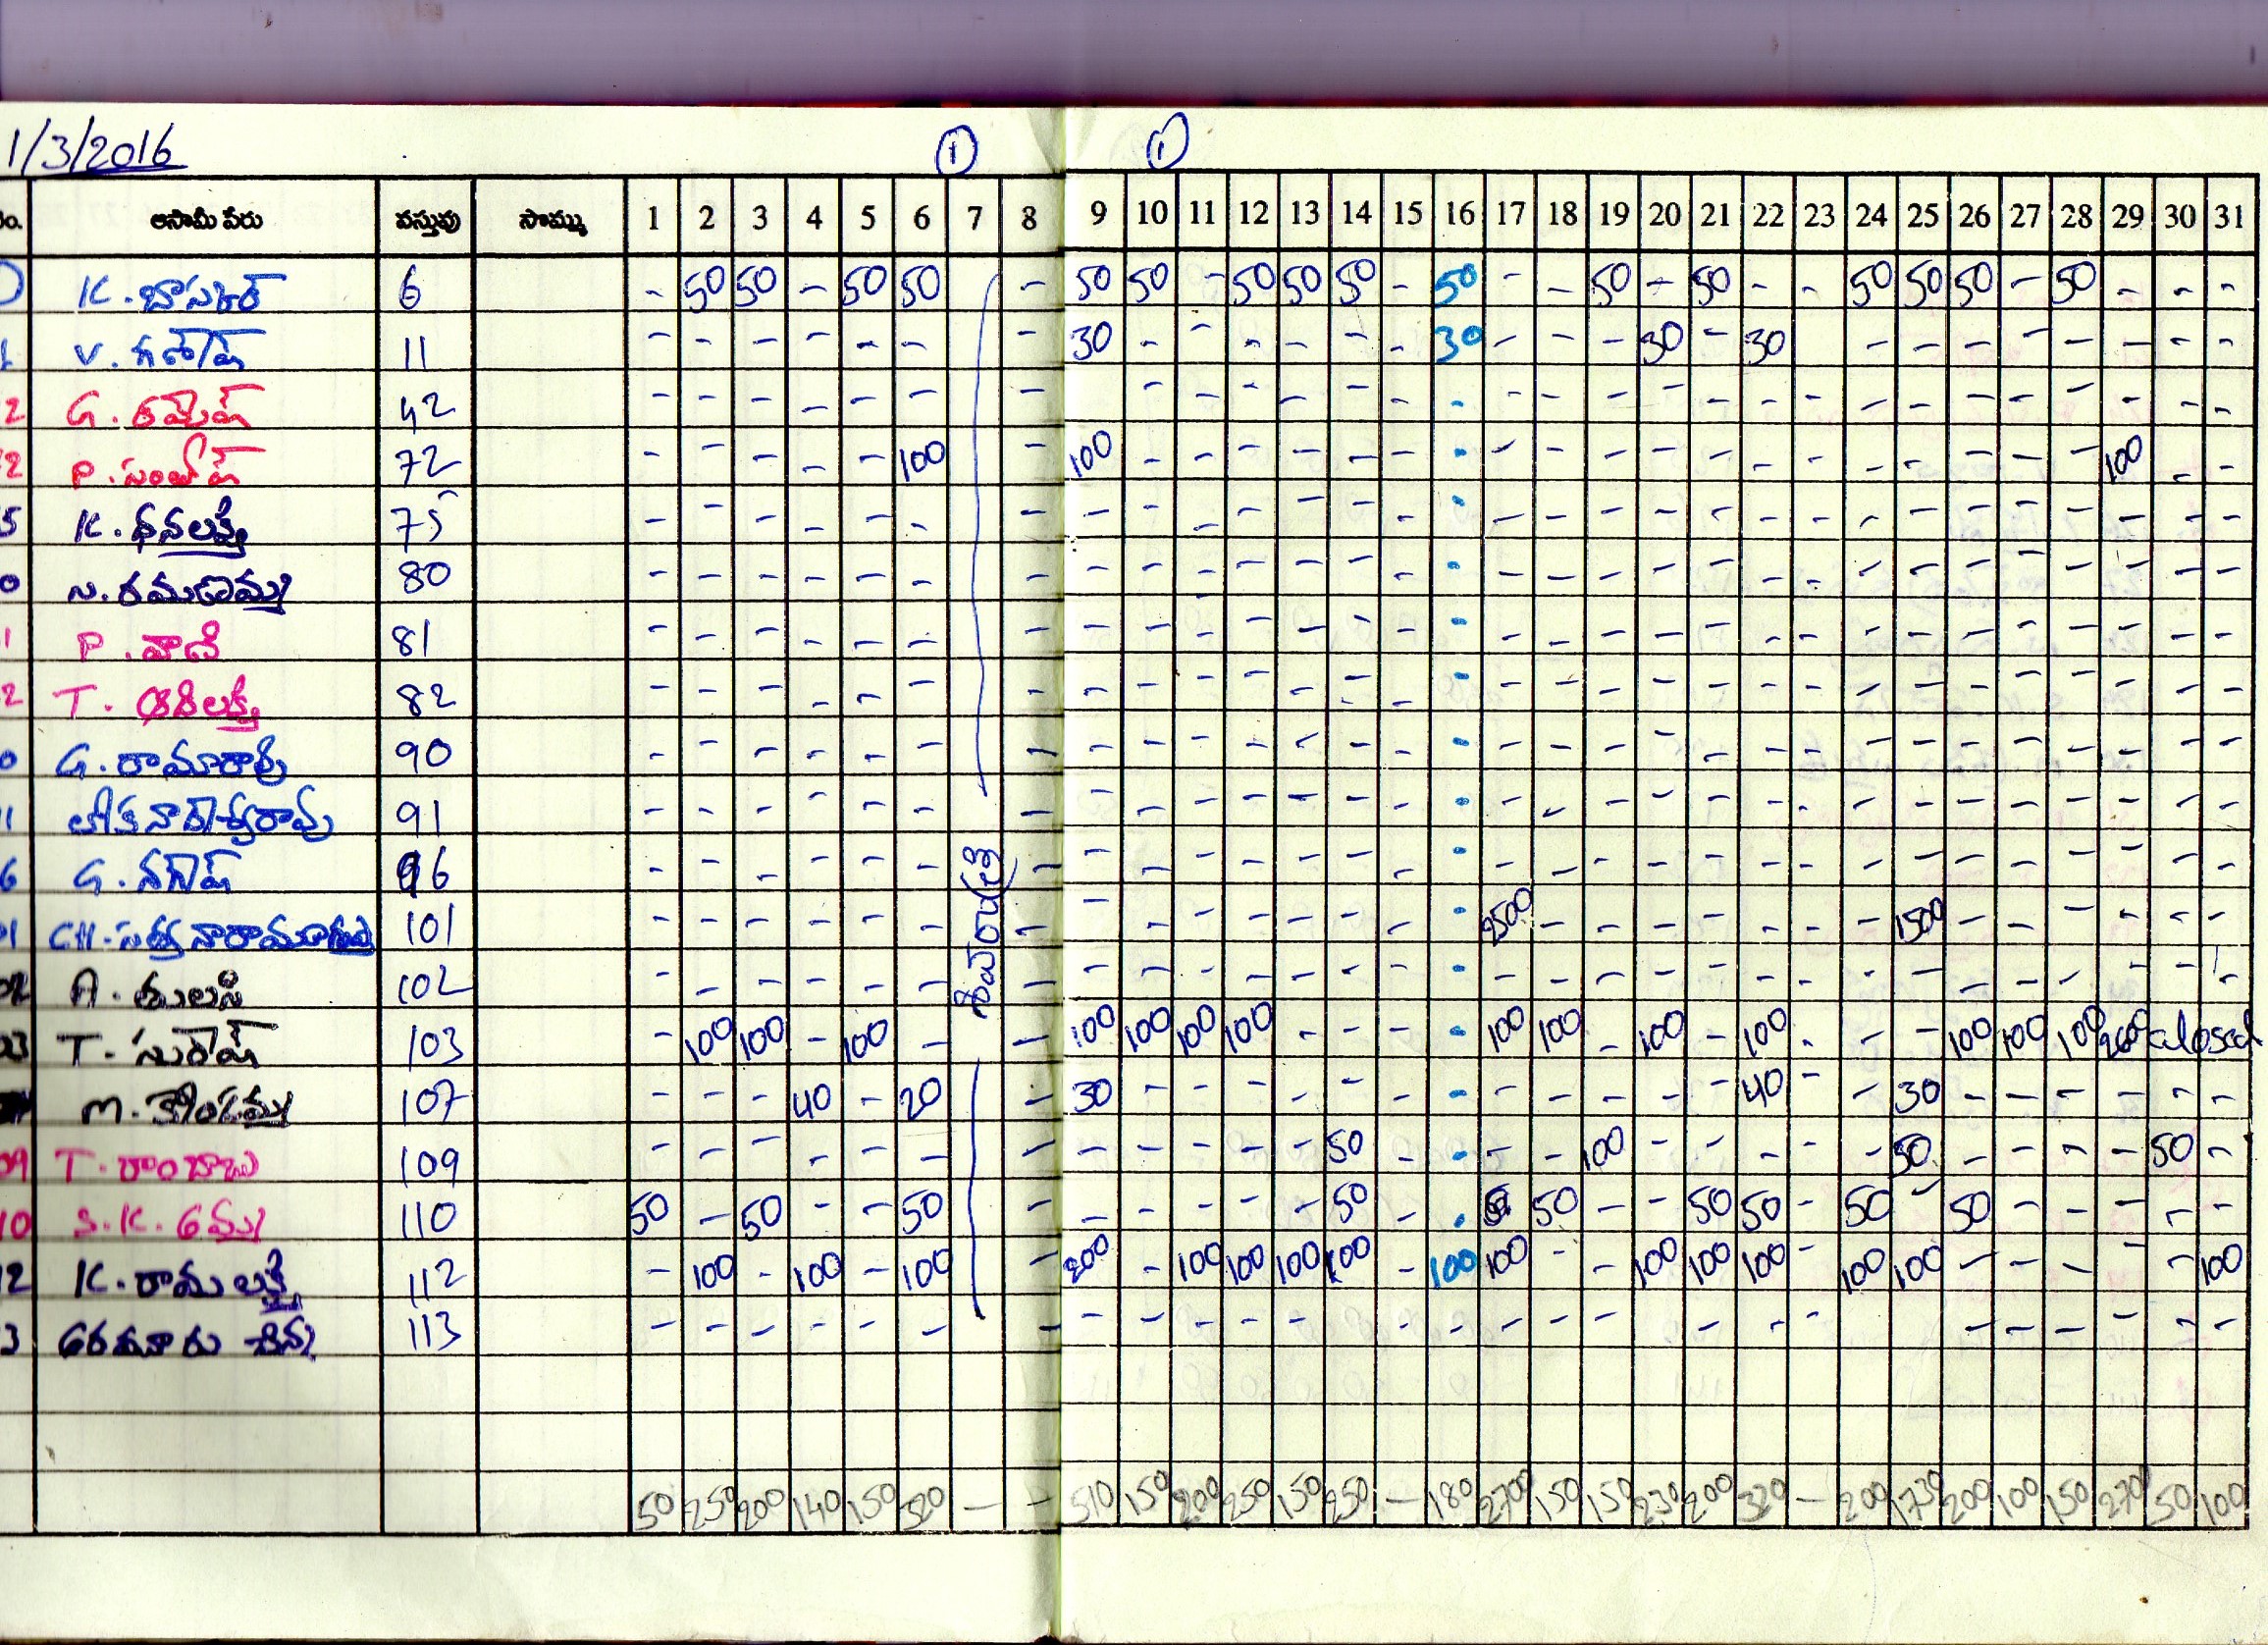 1/3/2016 ① ①
ఆసామీ పేరు వస్తువు సొమ్ము 1 2 3 4 5 6 7 8 9 10 11 12 13 14 15 16 17 18 19 20 21 22 23 24 25 26 27 28 29 30 31
K. బాస్కర్ 6 - 50 50 - 50 50 - 50 50 - 50 50 50 - 50 - - 50 - 50 - - 50 50 50 - 50 - - -
V. గణేష్ 11 - - - - - - - 30 - - - - - - 30 - - - 30 - 30 - - - - - - - -
2 G. రమేష్ 42 - - - - - - - - - - - - - - - - - - - - - - - - - - - -
2 P. సంతోష్ 72 - - - - - 100 - 100 - - - - - - - - - - - - - - - - - - - 100 - -
5 K. ధనలక్ష్మి 75 - - - - - - - - - - - - - - - - - - - - - - - - - - - - - -
0 న. రమణమ్మ 80 - - - - - - - - - - - - - - - - - - - - - - - - - - - - - -
1 P. వాణి 81 - - - - - - - - - - - - - - - - - - - - - - - - - - - - - -
2 T. ఆదిలక్ష్మి 82 - - - - - - - - - - - - - - - - - - - - - - - - - - - - - -
0 G. రామారావు 90 - - - - - - - - - - - - - - - - - - - - - - - - - - - - - -
1 91 - - - - - - - - - - - - - - - - - - - - - - - - - - - - - -
6 G. నగేష్ 96 - - - - - - - - - - - - - - - - - - - - - - - - - - - - - -
శివరాత్రి
01 CH. సత్యనారాయణ 101 - - - - - - - - - - - - - - - 2500 - - - - - - - 1500 - - - - - -
02 A. తులసి 102 - - - - - - - - - - - - - - - - - - - - - - - - - - - - - -
03 T. సురేష్ 103 - 100 100 - 100 - - 100 100 100 100 - - - - 100 100 - 100 - 100 - - - 100 100 100 2600 closed
107 - - - 40 - 20 - 30 - - - - - - - - - - - 40 - - 30 - - - - - -
09 T. రాంబాబు 109 - - - - - - - - - - - - 50 - - - - 100 - - - - - 50 - - - - 50 -
10 S.K. 110 50 - 50 - - 50 - - - - - - 50 - - 50 - - 50 50 - 50 - 50 - - - - -
12 K. రామలక్ష్మి 112 - 100 - 100 - 100 - 200 - 100 100 100 100 - 100 100 - - 100 100 100 - 100 100 - - - - - 100
3 113 - - - - - - - - - - - - - - - - - - - - - - - - - - - -
50 250 200 140 150 320 - - 510 150 200 250 150 250 - 180 2700 150 150 230 200 320 - 200 1730 200 100 150 2700 50 100